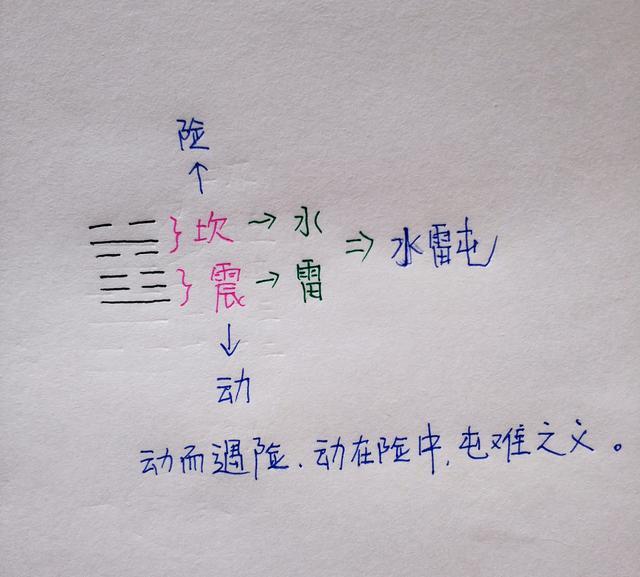 险
↑
坎→水
⇒水雷屯
震→雷
↓
动
动而遇险、动在险中,屯难之义。